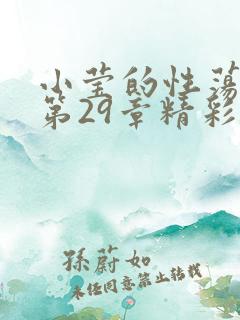 小莹的性荡
第29章精彩
孫蔚如
未经同意禁止转载